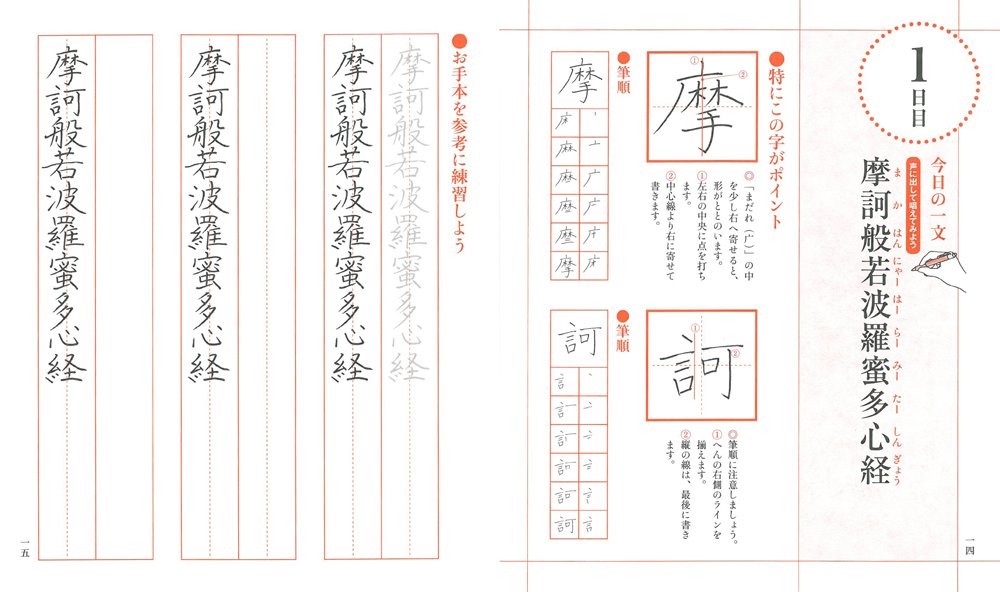 1日目
今日の一文
声に出して唱えてみよう
摩訶般若波羅蜜多心経
ま か はん にゃー はー らー みー たー しん ぎょう
●特にこの字がポイント
摩
①
②
◎「まだれ（广）」の中
を少し右へ寄せると、
形がととのいます。
①左右の中央に点を打ち
ます。
②中心線より右に寄せて
書きます。
●筆順
摩
訶
①
②
◎筆順に注意しましょう。
①へんの右側のラインを
揃えます。
②縦の線は、最後に書き
ます。
●筆順
訶
一四
●お手本を参考に練習しよう
摩訶般若波羅蜜多心経
摩訶般若波羅蜜多心経
摩訶般若波羅蜜多心経
摩訶般若波羅蜜多心経
一五